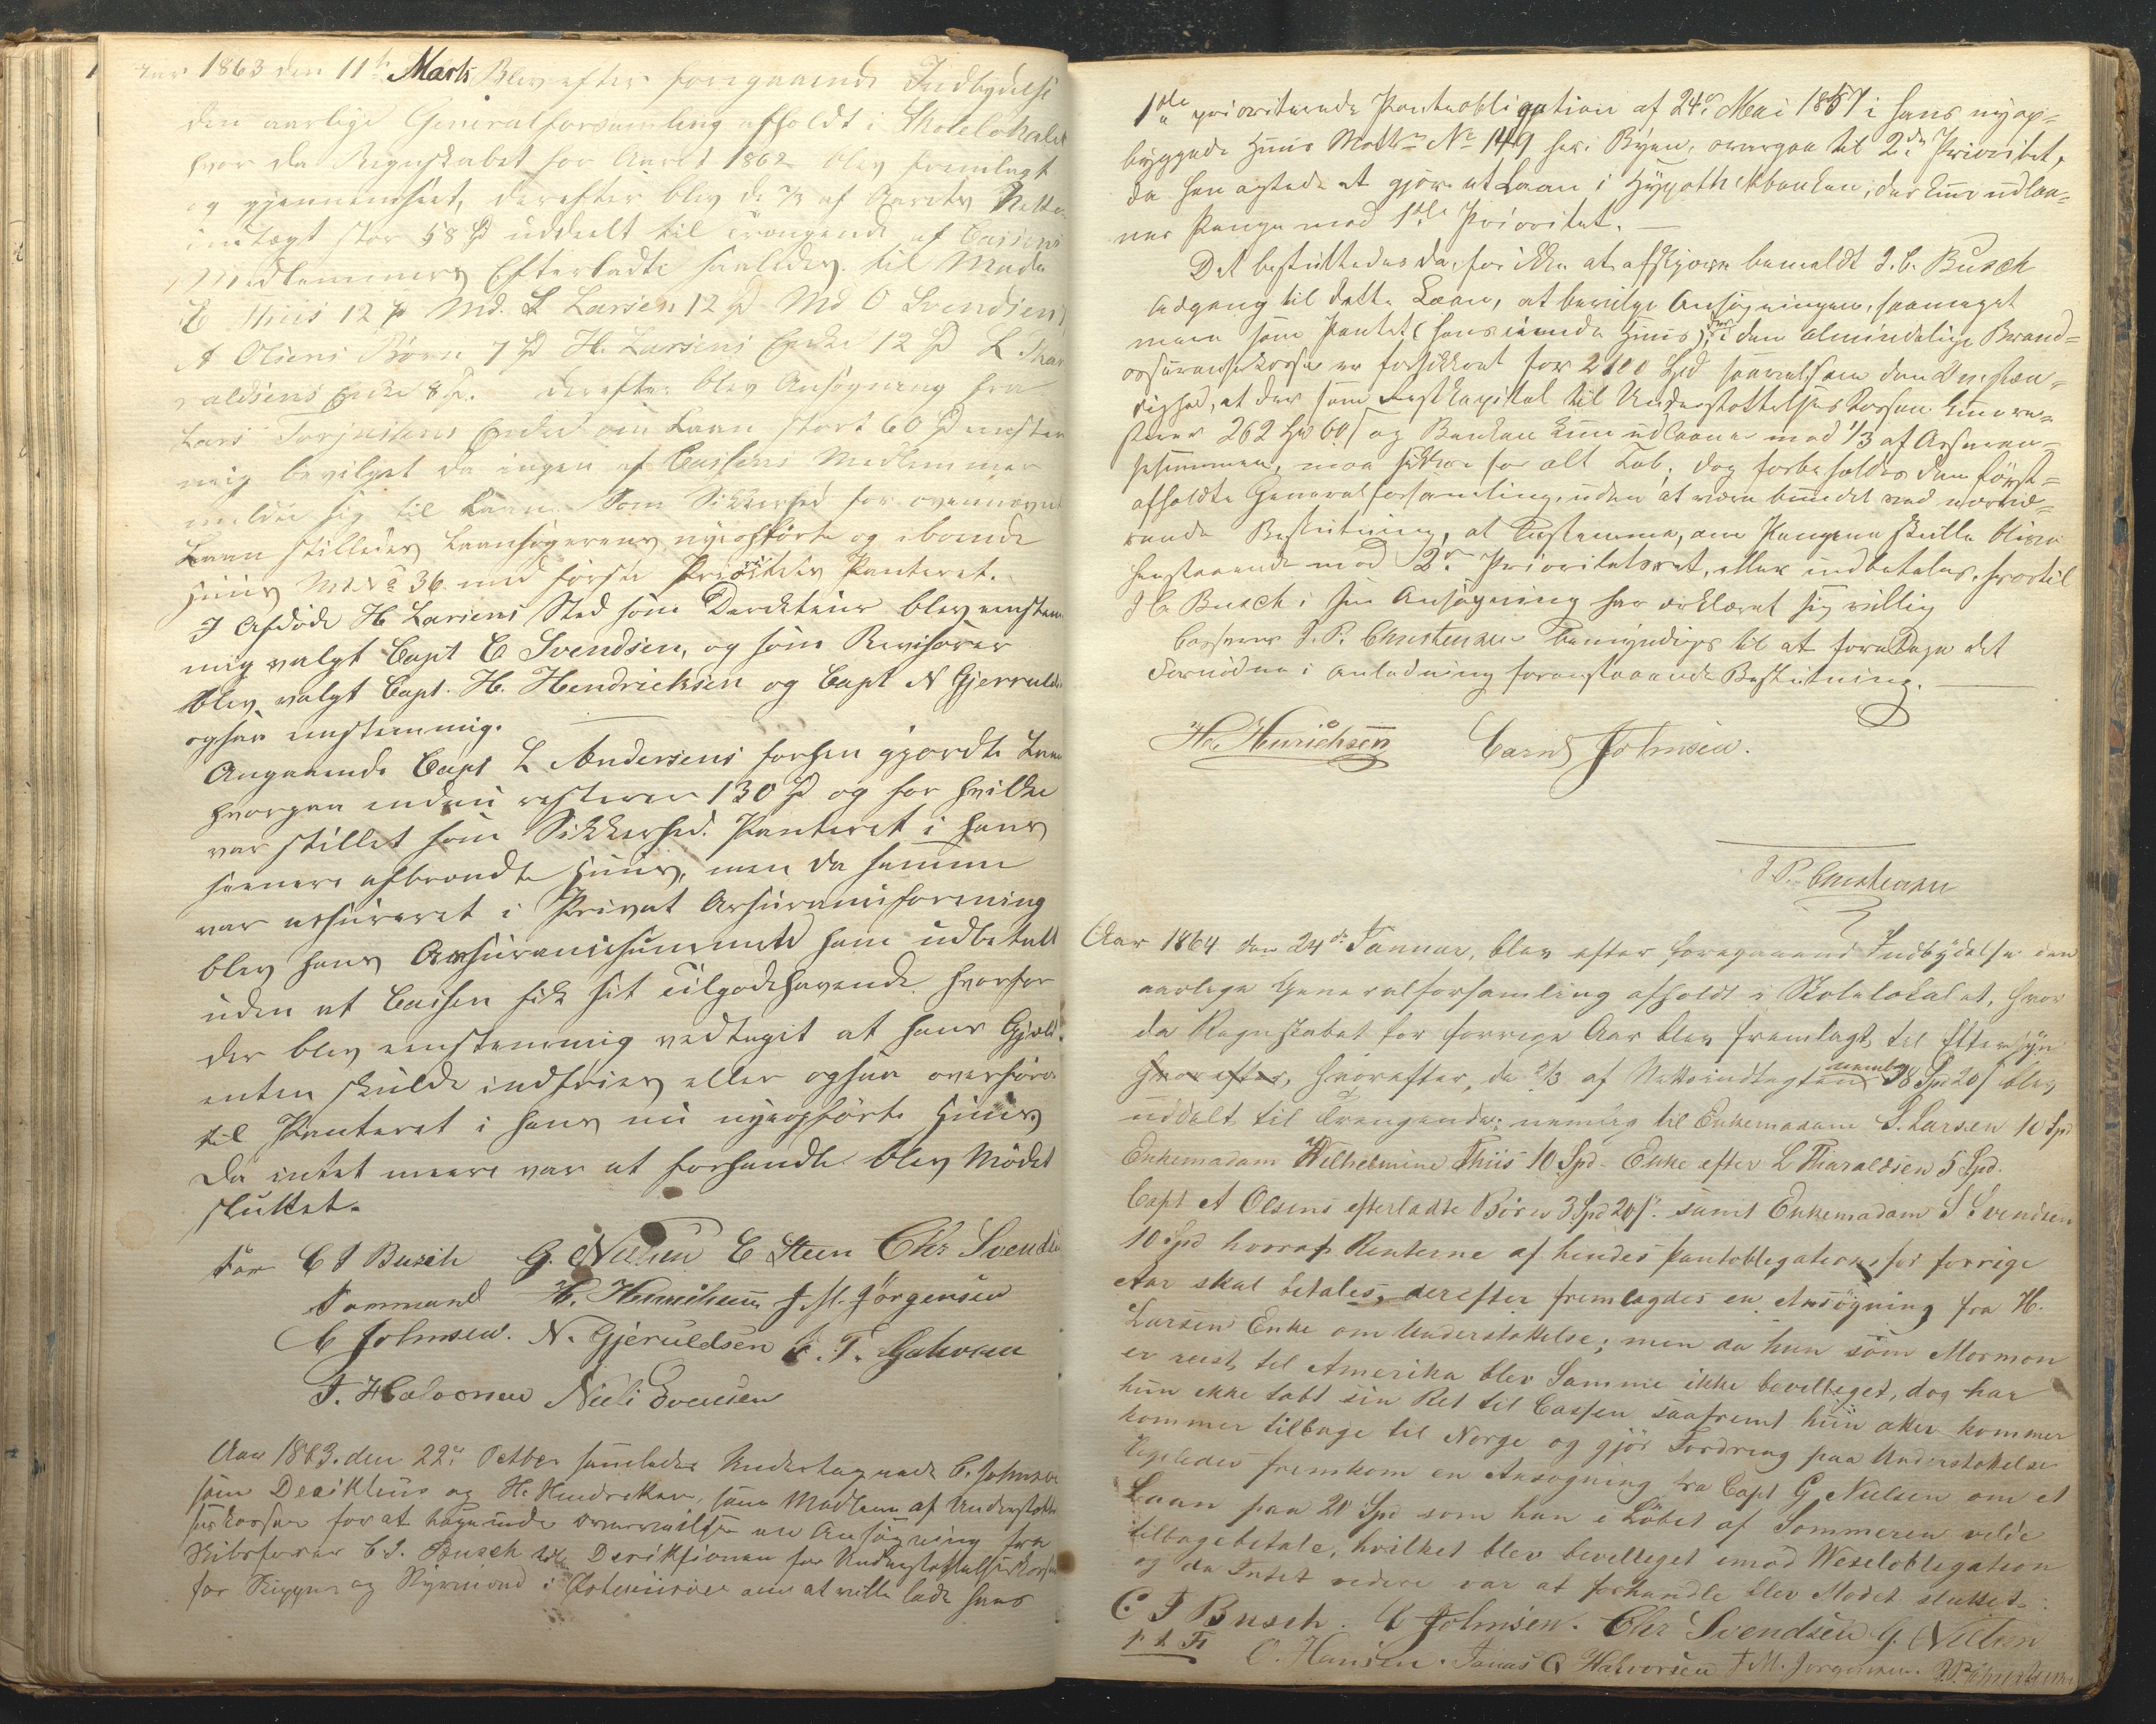 Aar 1863 den 11te Marts Blev efter foregaaende Indbydelse
den aarlige Generalforsamling afholdt i Skolelokalet
hvor da Regnskabet for Aaret 1862 blev fremlagt
og gjennemseet, derefter blev de 2/3 af Aarets Netto
indtægt stor 58 Spd uddeelt til trængende af Cassens
Medlemmers Efterladte saaledes til Mada
E Thiis 12 Spd Md. L Larsen 12 Spd Md O Svendsen
A Olsens Børn 7 Spd H. Larsens Enke 12 Spd L Thar
valdsens Enke 8 Spd. derefter blev Ansøgning fra
Lars Torjussens Enke om Laan stort 60 Spd eenstem
mig bevilget da ingen af Cassens Medlemmer
meldte sig til Laan. Som Sikkerhed for ovennævnte
Laan stilledes Laansøgerens nyeopførte og iboende
Huus Mt No 36 med første Prioritets Panteret.
I Afdøde H Larsens Sted som Direkteur blev eenstem
mig valgt Capt C Svendsen, og som Revisorer
blev valgt Capt. H. Hendricksen og Capt N Gjeruldsen
ogsaa eenstemmig.
Angaaende Capt L Andersens forhen gjordte Laan
hvorpaa endnu resterer 130 Spd og for hvilke
var stillet som Sikkerhed Panteret i hans
senere afbrændte Huus, men da samme
var assureret i Privat Assuranceforening
blev hans Assurancesumma ham udbetalt
uden at Cassen fik sit Tilgodehavende hvorfor
der blev eenstemmig vedtaget at hans Gjæld
enten skulde indfries eller ogsaa overføres
til Panteret i hans nu nyeopførte Huus
Da intet meere var at forhandle blev Mødet
sluttet.
C F Busch G. Nielsen C Steen Chr Svendsen
Formand H. Henrichsen F. M. Jørgensen
C Johnsen. N. Gjeruldsen
T. Halvorsen Niels Evensen
Aar 1863. den 22de Octber samledes Undertegnede C. Johnsen
som Direkteur og H. Hendriksen, som Medlem af Understøttel
seskassen for at tage under overveielse en Ansøgning fra
Skibsfører C. F. Busch til Direktionen for Understøttelseskassen
for Skippere og Styrmænd i Østerriisøer om at ville lade hans
1ste prioriterende Panteobligation af 24de Mai 1857 i hans nyop=
byggede Huus Matr No 149 her i Byen, overgaa til 2den Prioritet,
da han agtede at gjøre et Laan i Hypothekbanken, der kun udlaa=
ner Penge mod 1ste Prioritet.
Det besluttedes da, for ikke at afskjære bemeldt J. C. Busch
Adgang til dette Laan, at bevilge Ansøgningen, saameget
mere som Pantet (hans iboende Huus), der i den almindelige Brand=
assurancekasse er forsikkret for 2100 Spd saavelsom den Omstæn=
dighed, at der som Restkapital til Understøttelseskassen kun re=
sterer 262 Spd 60 s og Banken kun udlaaner mod 1/3 af Assuran=
sesummen, maa sikkre for alt Tab; dog forbeholdes den først=
afholdte Generalforsamling, uden at være bundet ved nærvæ=
rende Beslutning, at bestemme, om Pengene skulle blive
henstaaende mod 2den Prioritetsret, eller indbetales, hvortil
J C. Busch i sin Ansøgning har erklæret sig villig
Casserer J. P. Christensen bemyndiges til at foretage det
Fornødne i Anledning foranstaaende Beslutning.
H. Henrichsen Carin Johnsen.
J. P. Christensen
Aar 1864 den 24de Januar, blev efter foregaaend Indbydelse den
aarlige Generalforsamling afholdt i Skolelokalet, hvor
da Regnskabet for forrige Aar blev fremlagt til Eftersyn
hvorefter, hvorefter, de 2/3 af Nettoindtægten nemlig 38 Spd 20 s blev
uddelt til Trængende; nemlig til Enkemadam S. Larsen 10 Spd
Enkemadam Wilhelmine Thiis 10 Spd. Enke efter L Tharaldsen 5 Spd.
Capt A Olsens efterladte Børn 3 Spd 20 s. samt Enkemadam S Svendsen
10 Spd hvoraf Renterne af hendes Pantobligations for forrige
Aar skal betales, derefter fremlagdes en Ansøgning fra H.
Larsen Enke om Understøttelse; men da hun som Mormon
er reist til Amerika blev Samme ikke bevilleget, dog har
hun ikke tabt sin Ret til Cassen saafremt hun atter kommer
kommer tilbage til Norge og gjør Fordring paa Understøttelse
ligeledes fremkom en Ansøgning fra Capt G Nielsen om et
Laan paa 20 Spd som han i Løbet af Sommeren vilde
tilbagebetale, hvilket blev bevilleget imod Wexelobligation
og da Intet videre var at forhandle blev Mødet sluttet.
C. F Busch. C Johnsen. Chr Svendsen G. Nielsen
p t F
O. Hansen. Jonas O Halvorsen F M. Jørgensen. J. P. Christensen